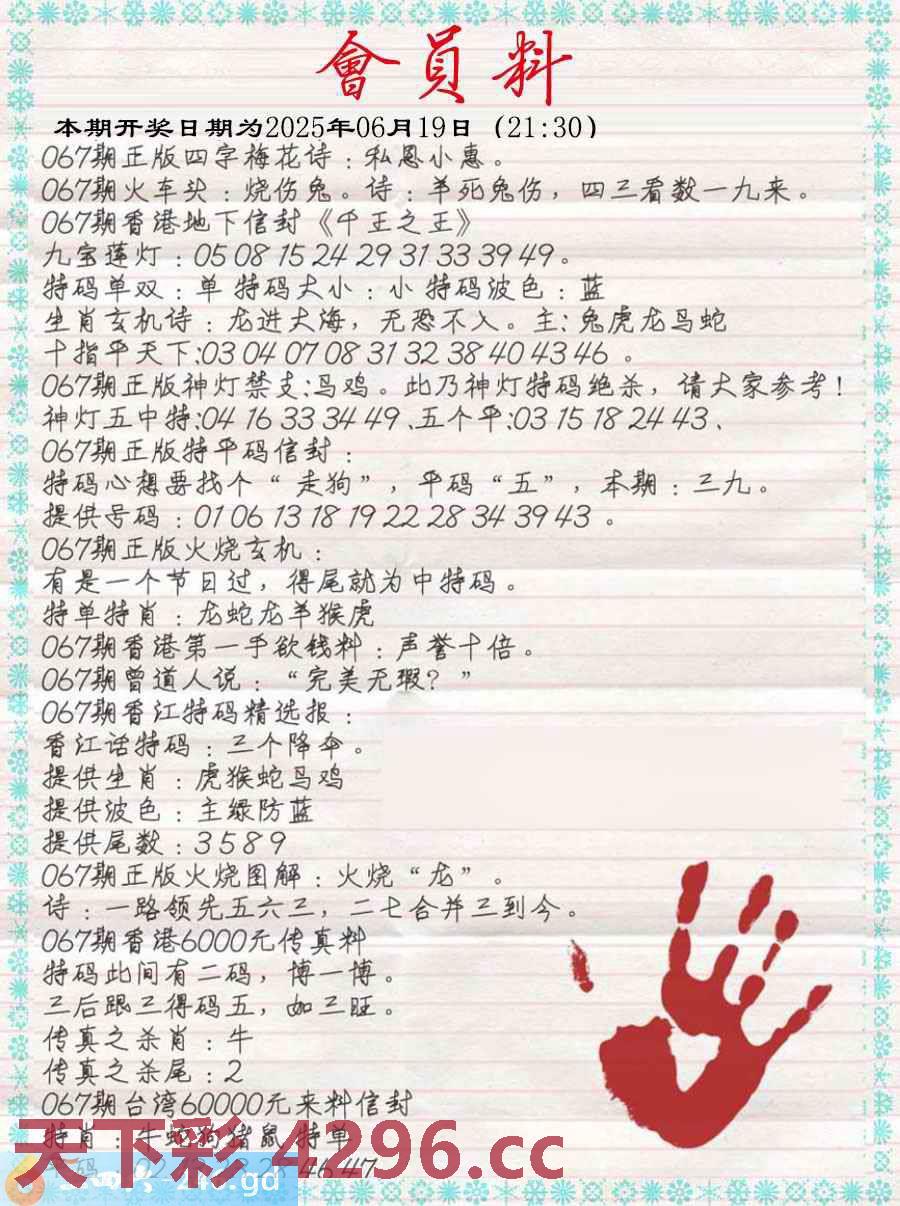 會員料
本期开奖日期为2025年06月19日（21:30）
067期正版四字梅花诗：私恩小惠。
067期火车头：烧伤兔。诗：羊死兔伤，四三看数一九来。
067期香港地下信封《千王之王》
九宝莲灯：05 08 15 24 29 31 33 39 49。
特码单双：单 特码大小：小 特码波色：蓝
生肖玄机诗：龙进大海，无恐不入。主:兔虎龙马蛇
十指平天下:03 04 07 08 31 32 38 40 43 46 。
067期正版神灯禁支:马鸡。此乃神灯特码绝杀，请大家参考!
神灯五中特:04 16 33 34 49 、五个平:03 15 18 24 43、
067期正版特平码信封：
特码心想要找个“走狗”，平码“五”，本期：三九。
提供号码：01 06 13 18 19 22 28 34 39 43 。
067期正版火烧玄机：
有是一个节日过，得尾就为中特码。
特单特肖：龙蛇龙羊猴虎
067期香港第一手欲钱料：声誉十倍。
067期曾道人说：“完美无瑕？”
067期香江特码精选报：
香江话特码：三个降伞。
提供生肖：虎猴蛇马鸡
提供波色：主绿防蓝
提供尾数：3 5 8 9
067期正版火烧图解：火烧“龙”。
诗：一路领先五六三，二七合并三到今。
067期香港6000元传真料
特码此间有二码，博一博。
三后跟三得码五，如三旺。
传真之杀肖：牛
传真之杀尾：2
067期台湾60000元来料信封
特肖：牛蛇狗猪鼠 特单
46 47
天下彩4296.cc
246.gd